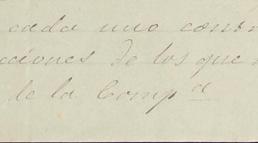 cada uno contr
ciones de los que
de la Comp.a